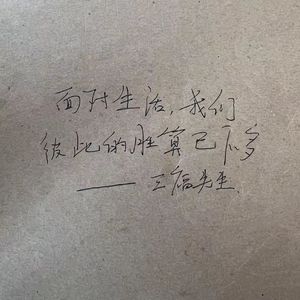 面对生活，我们
彼此的胜算已不多
——三福先生